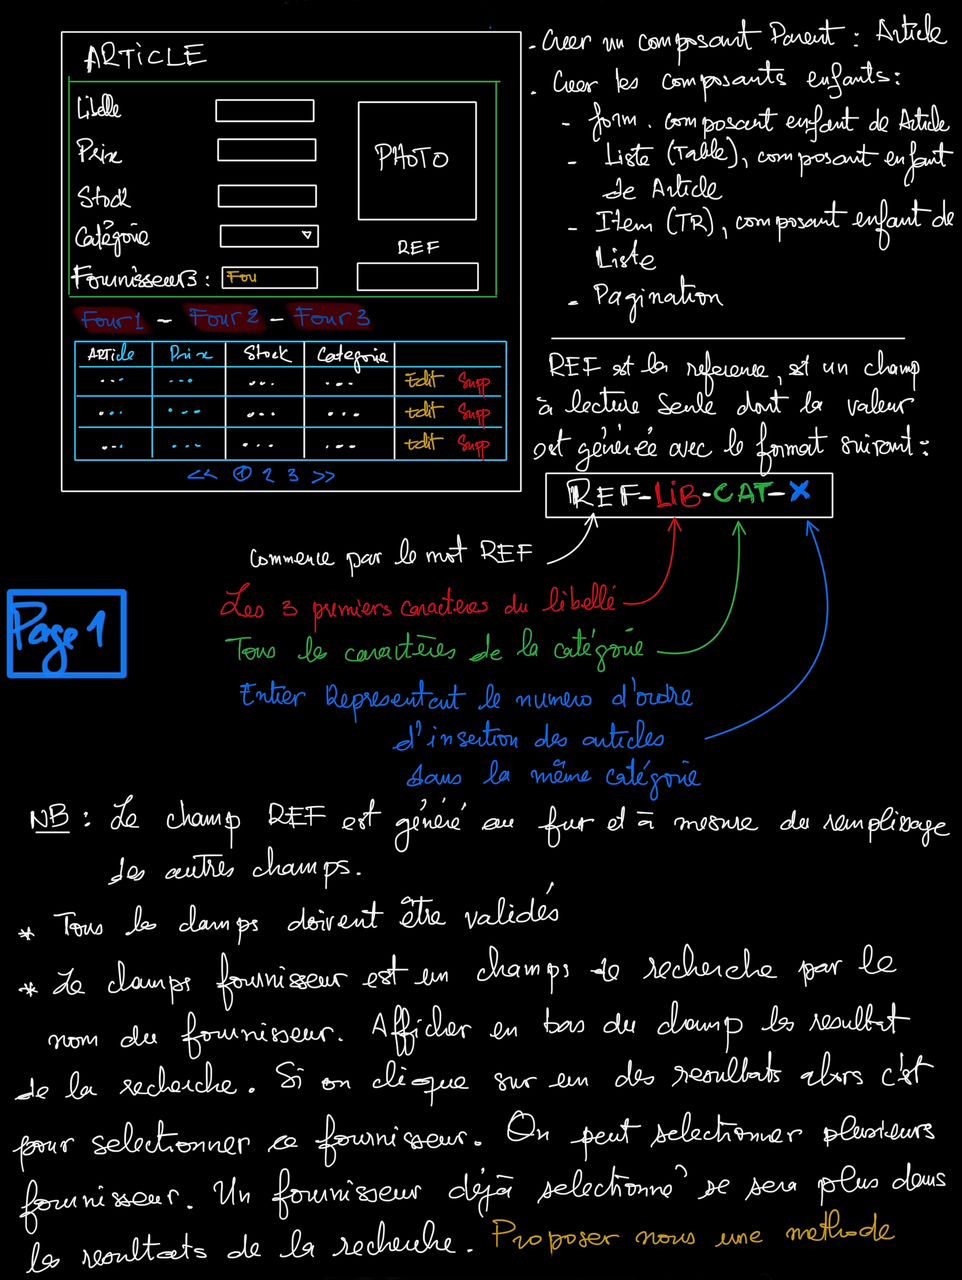 ARTICLE
Libelle
Prix
Stock
Catégorie
Fournisseurs : Fou
PHOTO
REF
Four 1 - Four 2 - Four 3
Article Prix Stock Categorie
... ... ... ... Edit Supp
... ... ... ... Edit Supp
... ... ... ... Edit Supp
<< 1 2 3 >>
- Creer un composant Parent : Article
- Creer les composants enfants :
- form. composant enfant de Article
- Liste (Table), composant enfant
de Article
- Item (TR), composant enfant de
Liste
- Pagination
REF est la reference, est un champ
à lecture seule dont la valeur
est générée avec le format suivant :
REF-LiB-CAT-X
Commence par le mot REF
Les 3 premiers caractères du libellé
Tous les caractères de la catégorie
Entier Representant le numero d'ordre
d'insertion des articles
dans la même catégorie
Page 1
NB : Le champ REF est généré au fur et à mesure du remplissage
des autres champs.
* Tous les champs doivent être validés
* Le champs fournisseur est un champs de recherche par le
nom du fournisseur. Afficher en bas du champ les resultat
de la recherche. Si on clique sur un des resultats alors c'est
pour selectionner ce fournisseur. On peut selectionner plusieurs
fournisseur. Un fournisseur déjà selectionné se sera plus dans
les resultats de la recherche. Proposer nous une methode